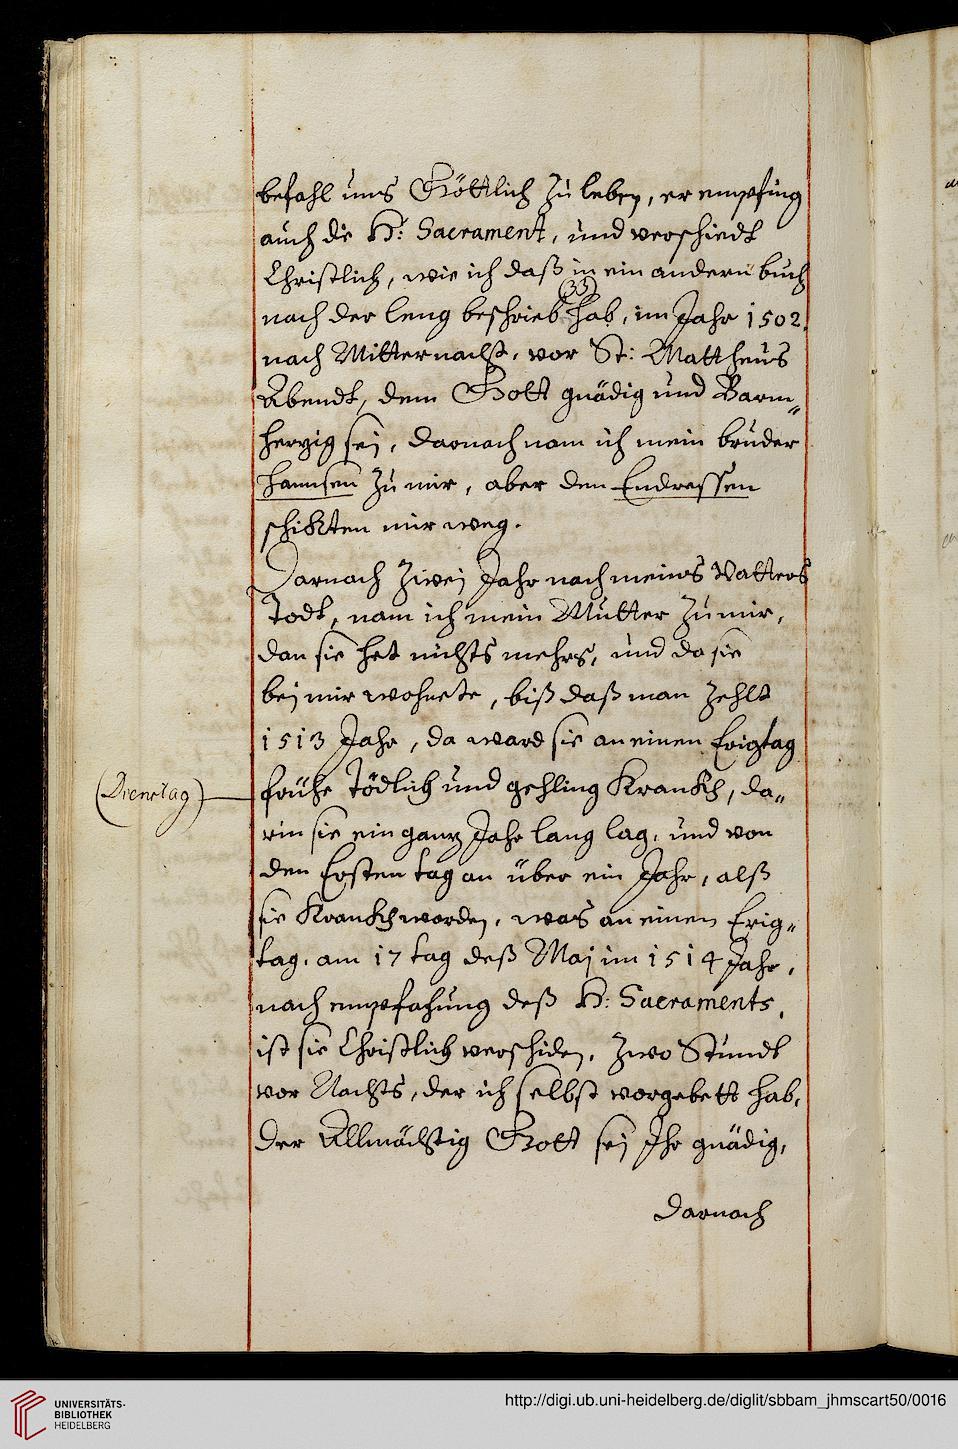 befahl uns Göttlich zu leben, er empfing
auch die H: Sacrament, und verschiedt
Christlich, wie ich daß in ein andern buch
(33)
nach der leng beschrieb hab, im Jahr 1502.
nach Mitternacht, vor St: Mattheus
Abendt, dem Gott gnädig und Barm„
herzig sej, darnach nam ich mein bruder
hannsen zu mir, aber den Endressen
schikten mir weg.
Darnach zwej Jahr nach meins Vatters
Todt, nam ich mein Mutter zu mir,
dan sie het nichts mehrs, und da sie
bej mir wohnete, biß daß man zehlt
1513 Jahr, da ward sie an einen Erigtag
(Dienstag)
frühe Tödlich und gehling Krankh, da„
rin sie ein ganz Jahr lang lag, und von
den Ersten tag an über ein Jahr, alß
sie Krankh worden, was an einen Erig„
tag, am 17 tag deß Maj im 1514 Jahr,
nach empfahung deß H: Sacraments,
ist sie Christlich verschiden, zwo Stundt
vor Nachts, der ich selbst vorgebett hab,
der Allmächtig Gott sej Ihr gnädig,
darnach
UNIVERSITÄTS-
BIBLIOTHEK
HEIDELBERG
http://digi.ub.uni-heidelberg.de/diglit/sbbam_jhmscart50/0016